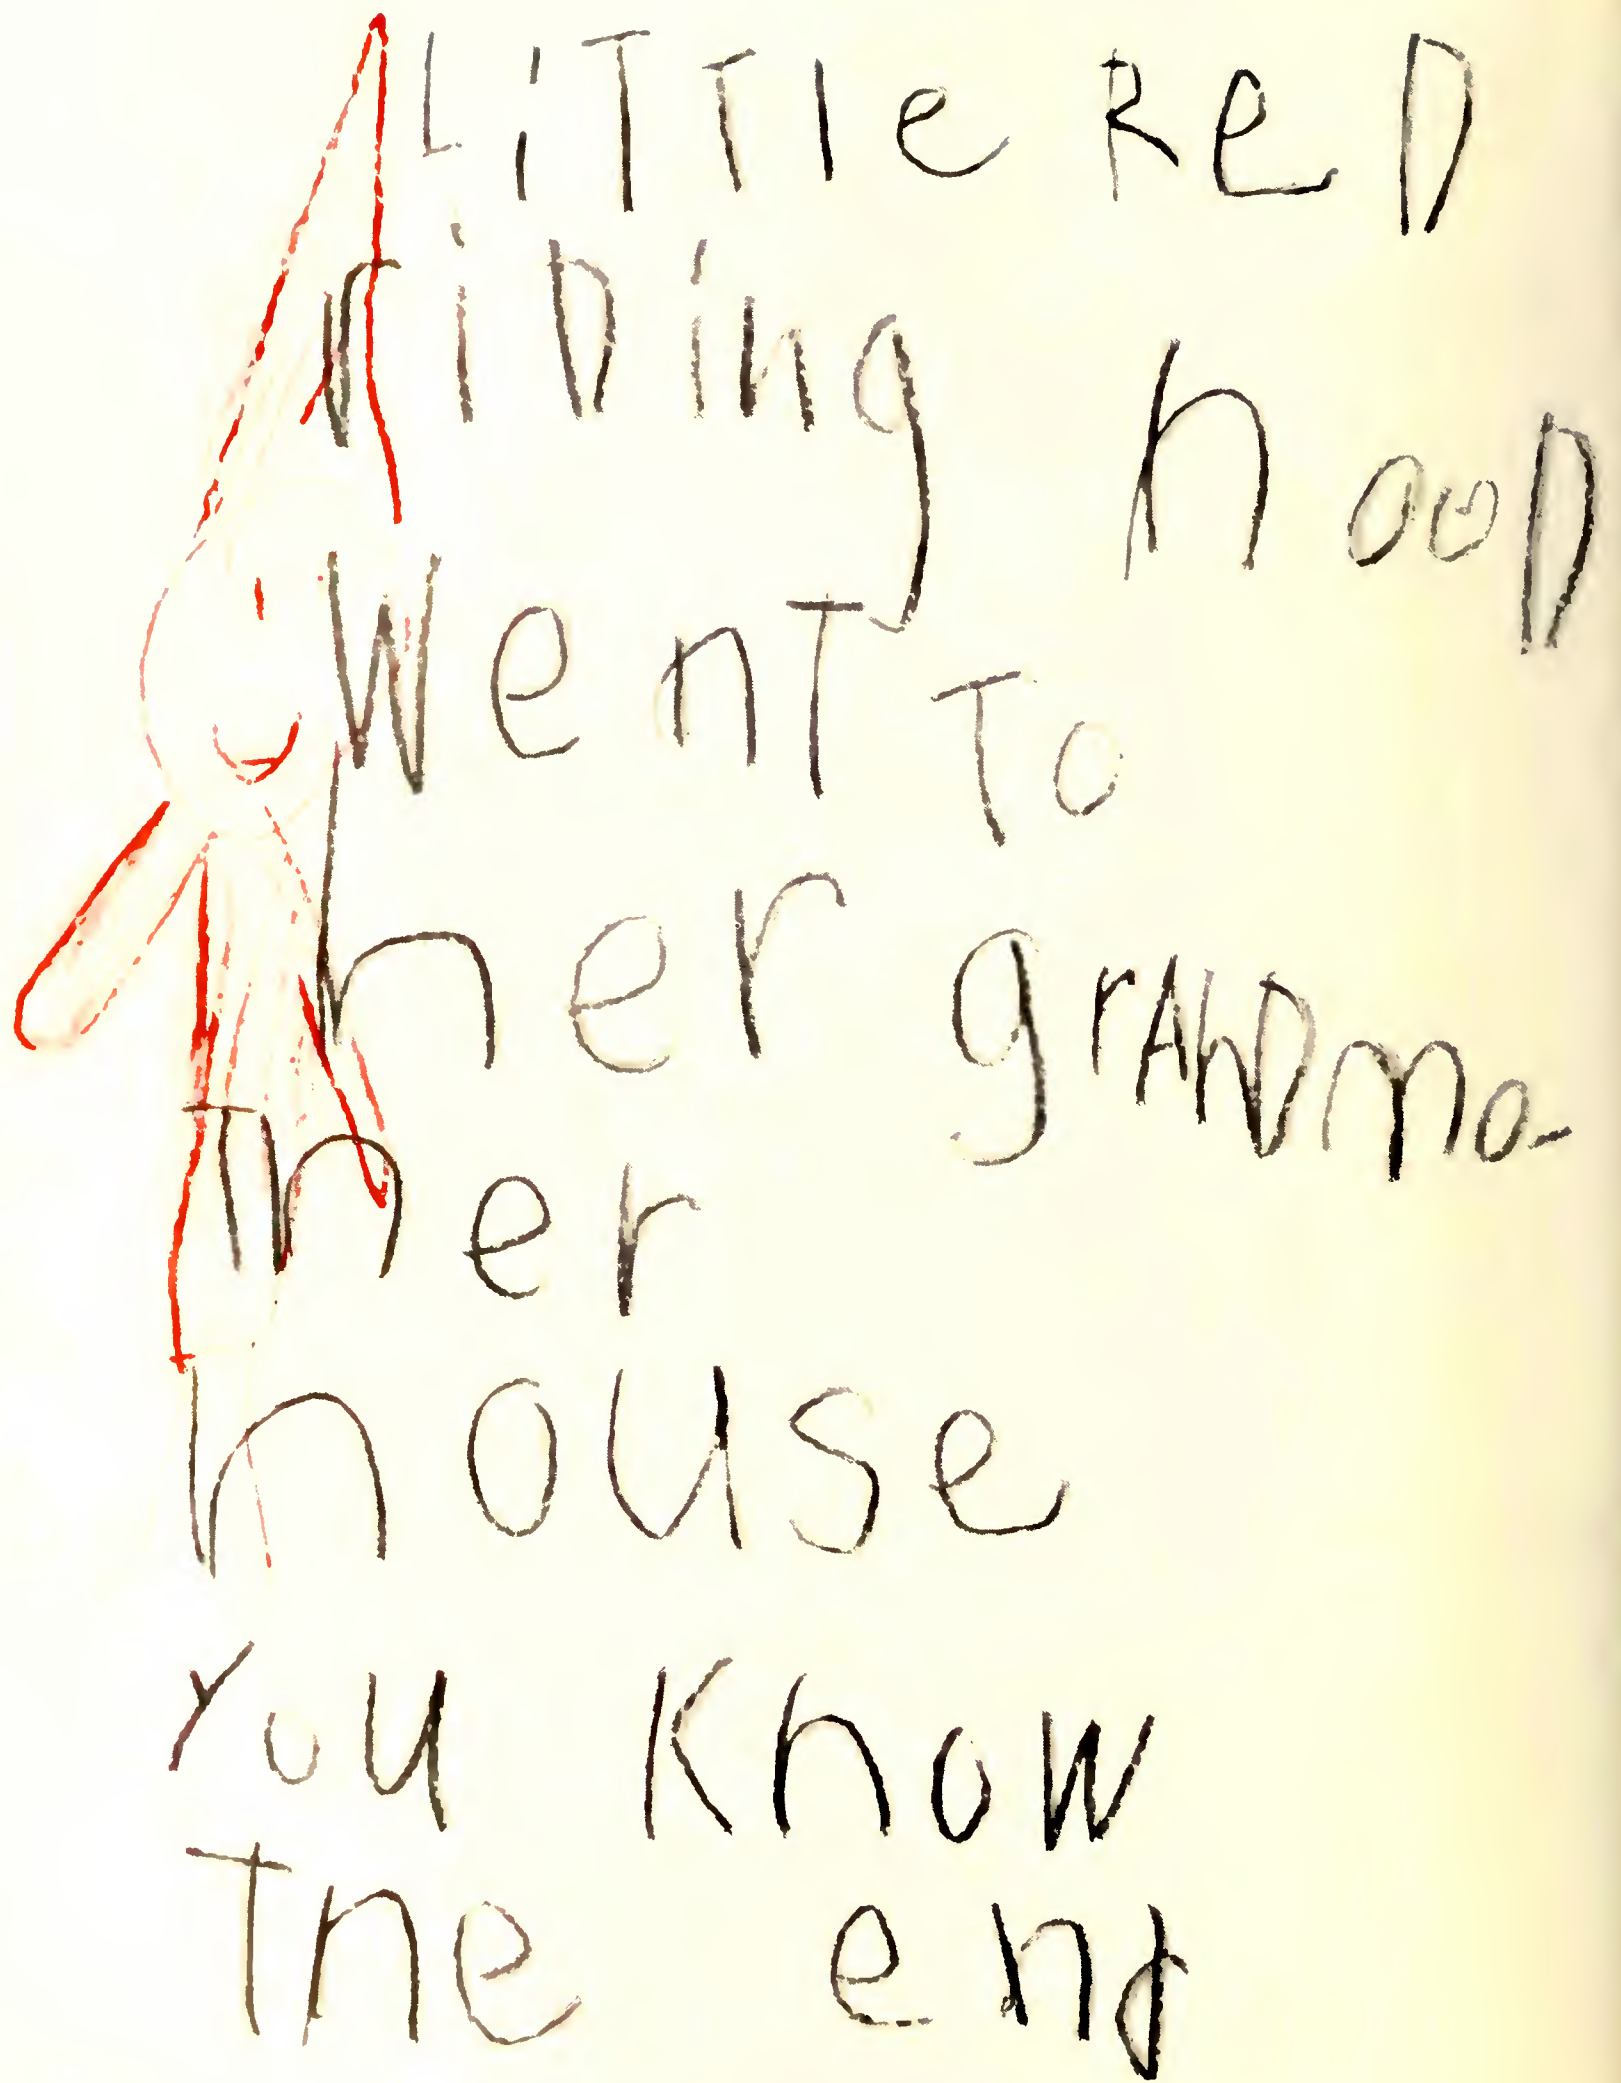 LiTTle ReD
riDing hooD
WenT To
her grANDma
Ther
house
You Know
The end